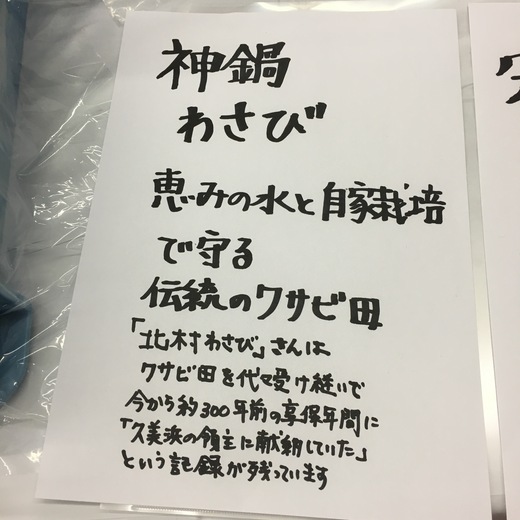 神鍋
わさび
恵みの水と自家栽培
で守る
伝統のワサビ田
「北村わさび」さんは
ワサビ田を代々受け継いで
今から約300年前の享保年間に
「久美浜の領主に献納していた」
という記録が残っています